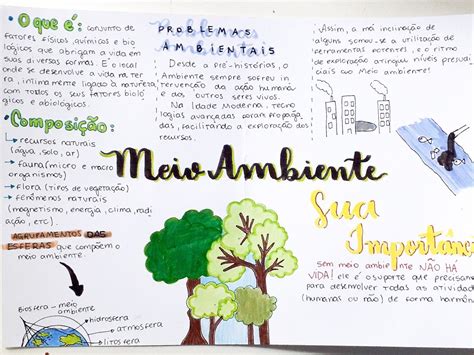 O que é: conjunto de
fatores físicos, químicos e bio
lógicos que abrigam a vida em
suas diversas formas. É o local
onde se desenvolve a vida na ter
ra, intimamente ligado à natureza
com todos os seus fatores bioló
gicos e abiológicos.
Composição:
→ recursos naturais
(água, solo, ar)
→ fauna (micro e macro
organismos)
→ flora (tipos de vegetação)
→ fenômenos naturais
(magnetismo, energia, clima, radi
ação, etc)
AGRUPAMENTOS DAS
ESFERAS que compõem o
meio ambiente.
Biosfera - meio
ambiente
hidrosfera
atmosfera
litosfera
PROBLEMAS
AMBIENTAIS
Desde a pré-histórios, o
Ambiente sempre sofreu in
tervenção da ação humana
e dos outros seres vivos.
Na Idade Moderna, tecno
logias avançadas foram propaga
das, facilitando a exploração dos
recursos.
Assim, a má inclinação de
alguns somou-se a utilização de
ferramentas potentes, e o ritmo
de exploração atingiu níveis prejudi
ciais ao Meio Ambiente!
Meio Ambiente
Sua
Importânc
sem meio ambiente NÃO HÁ
VIDA! ele é o suporte que precisamo
para desenvolver todas as atividad
(humanas ou não) de forma harmôn